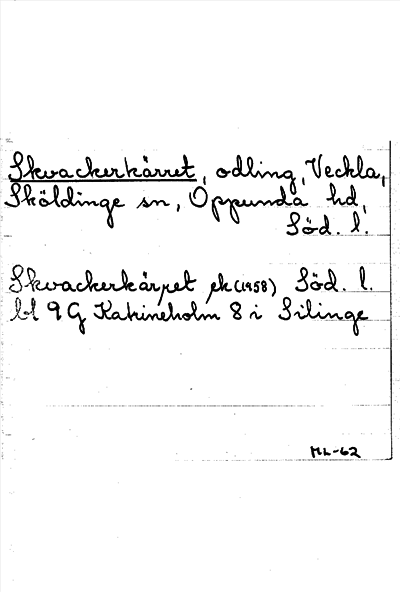 Skvackerkärret, odling, Veckla,
Sköldinge sn, Oppunda hd,
Söd. l.
Skvackerkärret ek (1958) Söd. l.
bl 9 G Katrineholm 8 i Silinge
ML-62